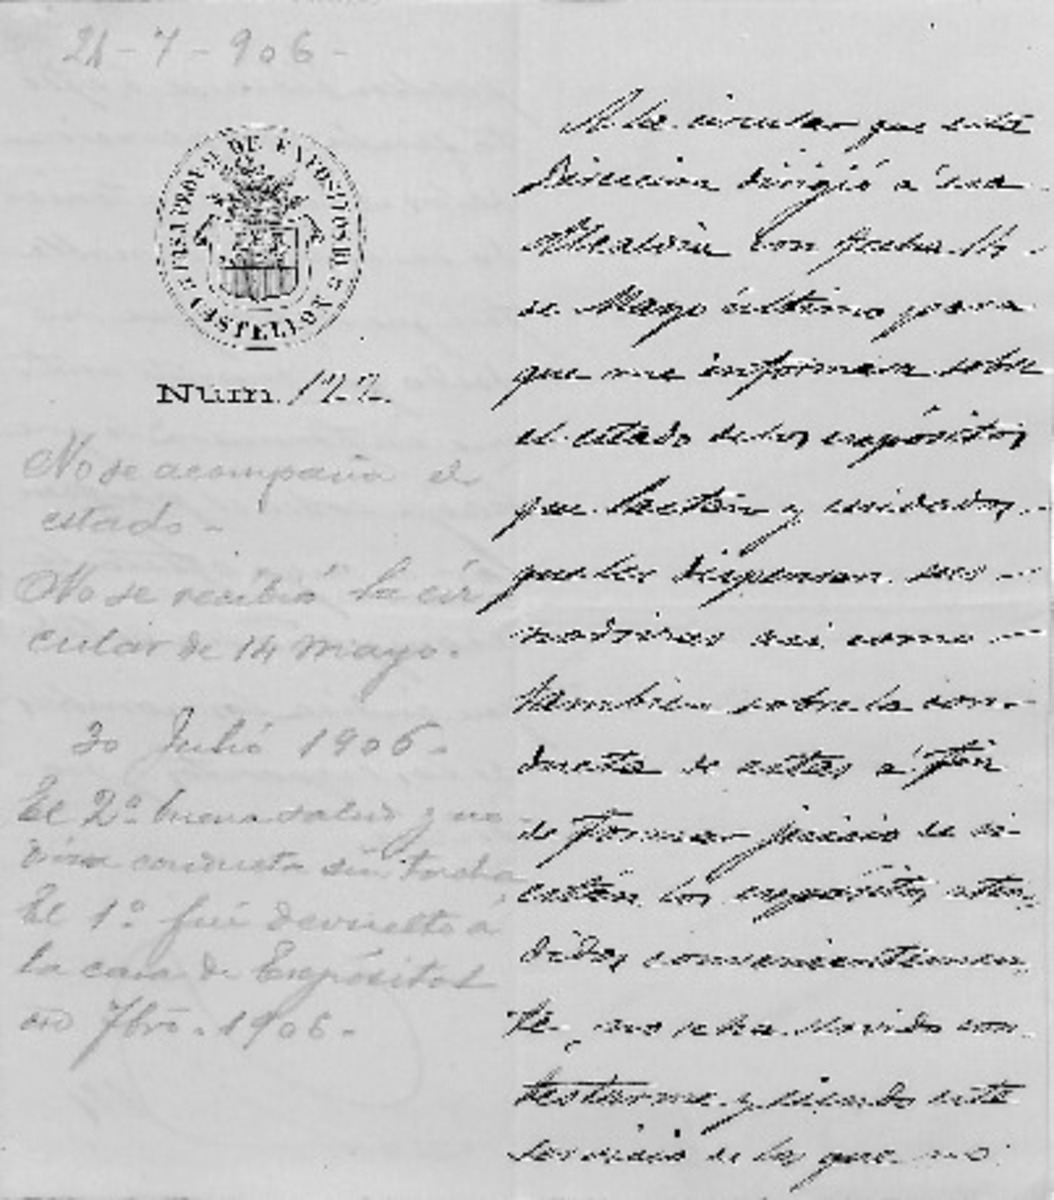 21-7-906-
CASA PROVAL DE EXPOSITOS DE CASTELLON
Núm. 122.
No se acompaña el
estado-
No se recibió la cir
cular de 14 mayo.
30 Julio 1906-
El 2º buena salud y no-
driza conducta sin tacha
El 1º fué devuelto á
la casa de Expósitos
en 7bre. 1906-
A la circular que esta
Direccion dirigió á esa
Alcaldia con fecha 14
de Mayo último para
que me informara sobre
el estado de los expósitos
que lactan y cuidados
que les dispensan sus
nodrizas asi como
tambien sobre la con-
ducta de estas á fin
de formar juicio de si
están los expósitos aten-
didos convenientemen
te, no se ha servido con-
testarme y siendo este
servicio de los que no